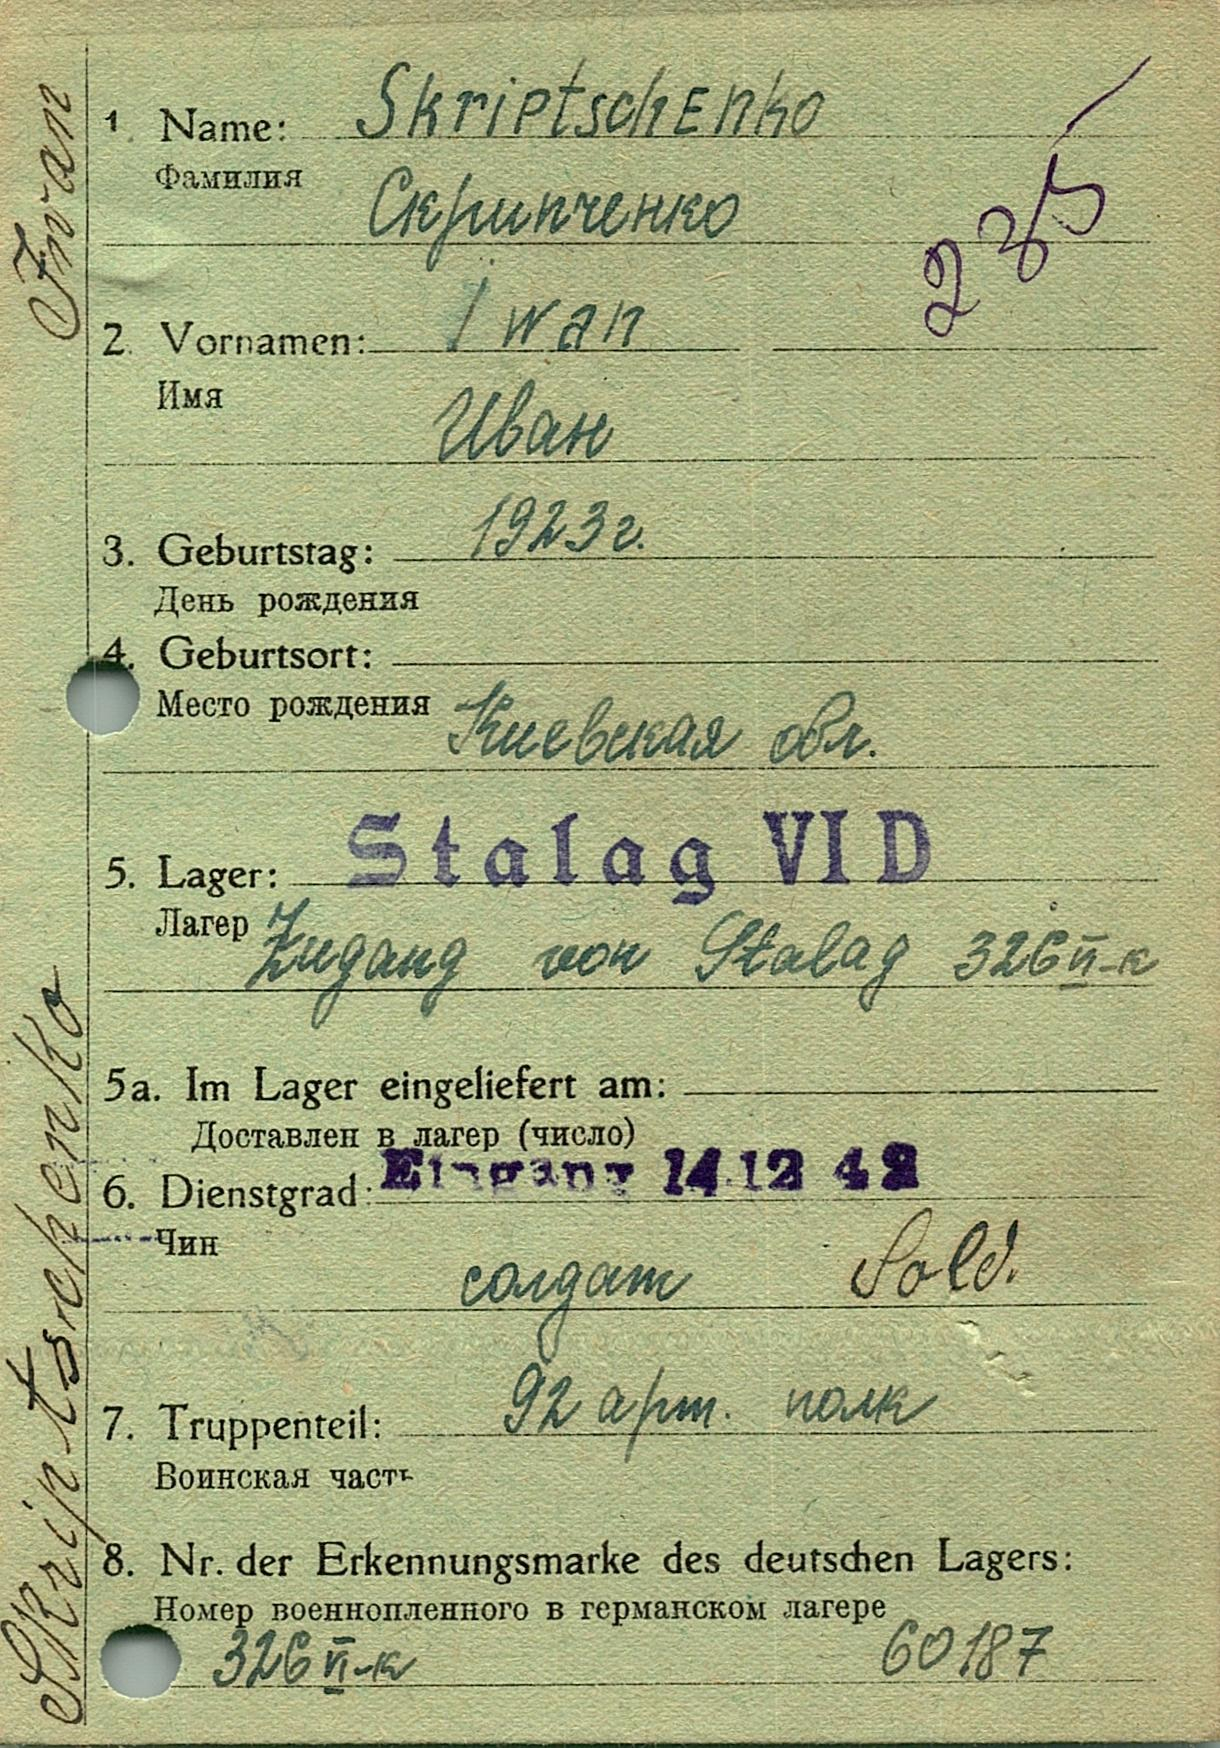 1. Name: Skriptschenko
Фамилия
Скрипченко
235
2. Vornamen: Iwan
Имя
Иван
3. Geburtstag: 1923 г.
День рождения
4. Geburtsort:
Место рождения Киевская обл.
5. Lager: Stalag VI D
Лагер Zugang von Stalag 326 VI-к
5a. Im Lager eingeliefert am:
Доставлен в лагер (число)
Eingang 14 12 42
6. Dienstgrad:
Чин
солдат Sold.
7. Truppenteil: 92 арт. полк
Воинская часть
8. Nr. der Erkennungsmarke des deutschen Lagers:
Номер военнопленного в германском лагере
326 VI-к 60187
Skriptschenko Iwan